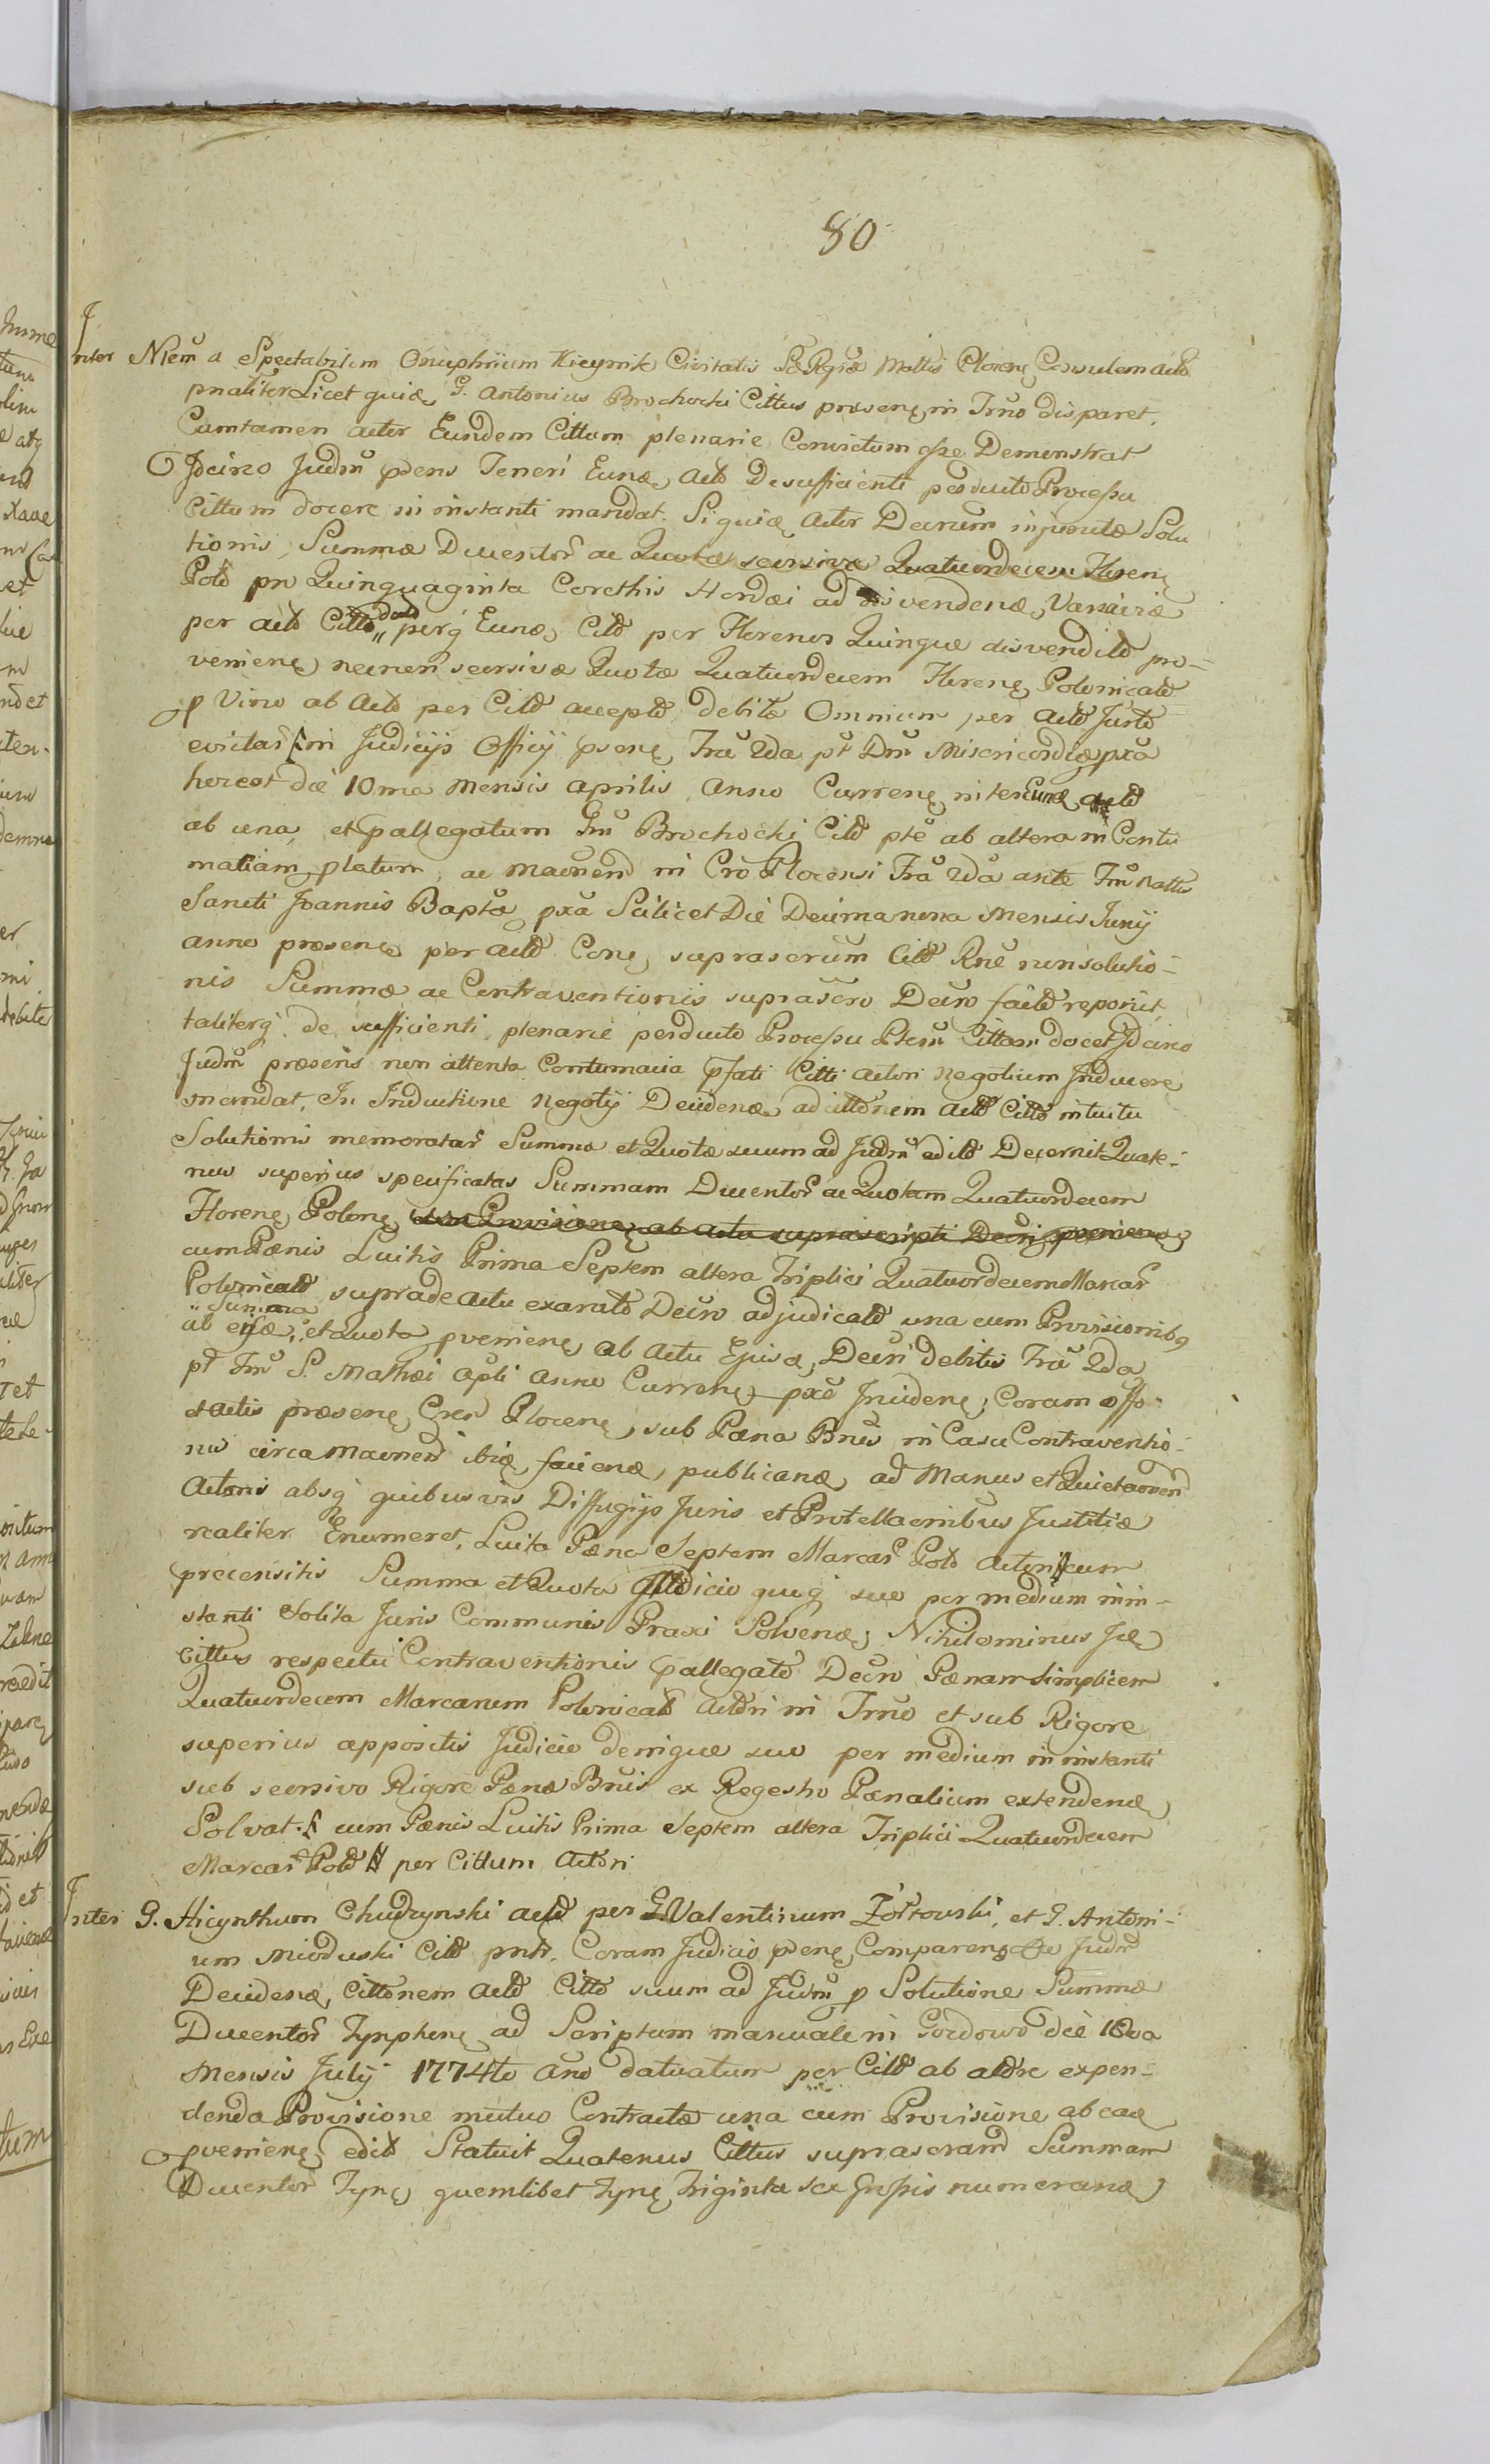 80
Inter Nlem a Spectabilem Onuphrium Kieynik Civitatis Sæ Rgiæ Mattis Plocen Consulem Actō
pnaliter Licet quidē G. Antonius Brochocki Cittus præsenē in Trno disparet,
Cum tamen Actor Eundem Cittum plenarie Convictum esse Demonstrat
Idcirco Judm̃ pñens Teneri Eundē Actō De sufficienti perducto Processu
Cittum docere in instanti mandat. Siquidē Actor Decretum injunctæ Solu
tionis, Summæ Ducentor̃ ac Quotæ seorsivæ Quatuordecem Florenē
Polō pro Quinquaginta Corethis Hordæi ad disvendendē, Varsaviæ
per actō Cittō datō perq̃ Eundē, Citō per Florenos Quinque disvenditō pro-
venienē, necnon seorsivæ Quotæ Quatuordecem Florenē Polonicalō
p Vino ab Actō per Citō acceptō, debitō Omnium per Actō Juste
evictar̃ in Judicijs Officij psenē, Fria 2da pt̃ Dm̃ Misericordiæ pxã
hoc est die 10ma Mensis Aprilis Anno Currenē, inter Eundē actō
ab una, et pallegatum Gm̃ Brochocki Citō pte ab altera in Contu
matiam platum, ac Macnend in Cro Plocensi Fria 2da ante Fm̃ Nattis
Sancti Joannis Baptæ pxã Scilicet Die Decima nona Mensis Junij
anno præsenē per Actō Conē, suprascrum Citō Rne non solutio-
nis Summæ ac Contraventionis suprascro Decro factō reposuit,
taliterq̃ de sufficienti plenarie perducto Processu Pltem Cittum docet Idcirco
Judm̃ præsens non attenta Contumacia pfati Citti Actori Negotium Inducere
mandat. In Inductione Negotij Decidendē, ad cittōnem Actō Cittō intuitu
Solutionis memoratar̃ Summæ et Quotæ suum ad Judm̃ editō Decernit Quate-
nus superius specificatas Summam Ducentor̃ ac Quotam Quatuordecem
Florenē Polonē una Provisionē ab actu suprascripti Decri pvenienē
cum Pænis Luitis Prima Septem altera Triplici Quatuordecem Marcar̃
Polonicalō supra de actu exaratō Decro adjudicalō una cum Provisionibq
ab ejsdē Summa et Quota pvenienē, ab Actu Ejusdē, Decri debitis Fria 2da
pt̃ Fm̃ S. Mathæi Apli Anno Currenē, pxe Incidenē, Coram Offo
et Actis præsenē, Cren Plocenē, sub Pæna Bnis in Casu Contraventio-
nis circa Macnend ibidē, faciendē, publicandē, ad Manus et Quietaonem
Actoris absq̃ quibusvis Diffugijs Juris et Protellaonibus Justitiæ
realiter Enumeret, Luita Pæna Septem Marcar̃ Polō Actori cum
precensitis Summa et Quota Judicio quoq̃ suo per medium in in-
stanti solita Juris Communis Praxi Solvendē; Nihilominus Idē
Cittus respectu Contraventionis pallegatō Decro Pænam Simplicem
Quatuordecem Marcarum Polonicalō Actori in Trno et sub Rigore
superius appositis Judicio denique suo per medium in instanti
sub seorsivo Rigore Pænæ Bnis ex Regestro Pænalium extendendē,
Solvat. cum Pænis Luitis Prima Septem altera Triplici Quatuordecem
Marcar̃ Polō per Cittum Actori
Inter G. Hicynthum Chudzynski actō per G. Valentinum Żórtowski, et G. Antoni-
um Mioduski Citō pntr̃. Coram Judicio pñenē Comparenē Judm̃
Decidendē, Cittōnem Actō Cittō suum ad Judm̃ p Solutione Summæ
Ducentor̃ Tynphenē ad Scriptum manuale in Gordowo die 18va
Mensis Julij 1774to Anō datuatum per Citō ab actore expen-
denda Provisione mutuo Contractæ una cum Provisione ab eadē
pvenienē, editō Statuit Quatenus Cittus suprascram Summam
Ducentor̃ Tynē, quemlibet Tynē, triginta sex Grossis numerandē,